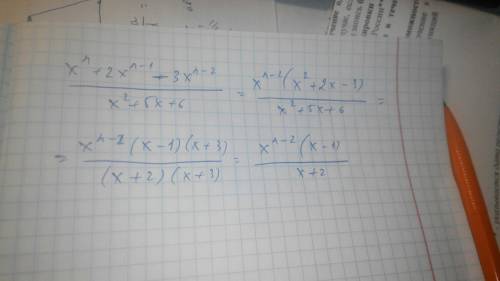 (xⁿ + 2xⁿ⁻¹ - 3xⁿ⁻²)/(x² + 5x + 6) = xⁿ⁻²(x² + 2x - 3)/(x² + 5x + 6) =
= xⁿ⁻²(x - 1)(x + 3)/((x + 2)(x + 3)) = xⁿ⁻²(x - 1)/(x + 2)